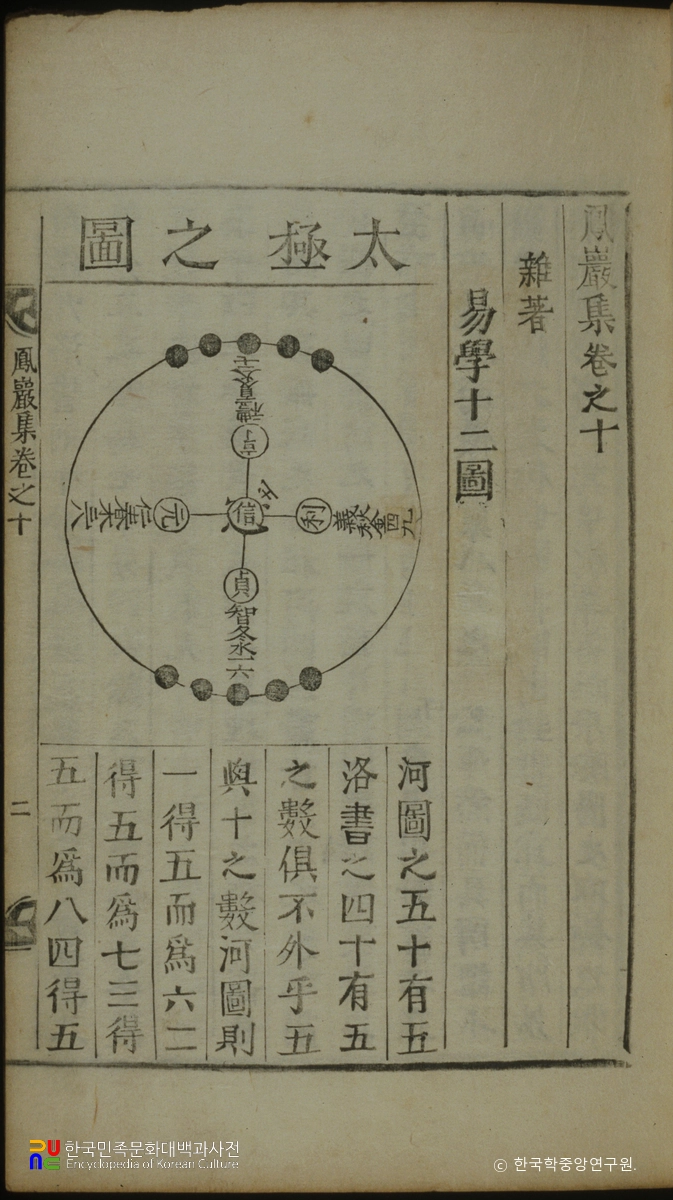 鳳巖集卷之十
雜著
易學十二圖
太極之圖
禮夏火二七
亨
元
仁春木三八
信
利
義秋金四九
貞
智冬水一六
河圖之五十有五
洛書之四十有五
之數俱不外乎五
與十之數河圖則
一得五而爲六二
得五而爲七三得
五而爲八四得五
鳳巖集卷之十
二
한국민족문화대백과사전
Encyclopedia of Korean Culture
ⓒ 한국학중앙연구원.